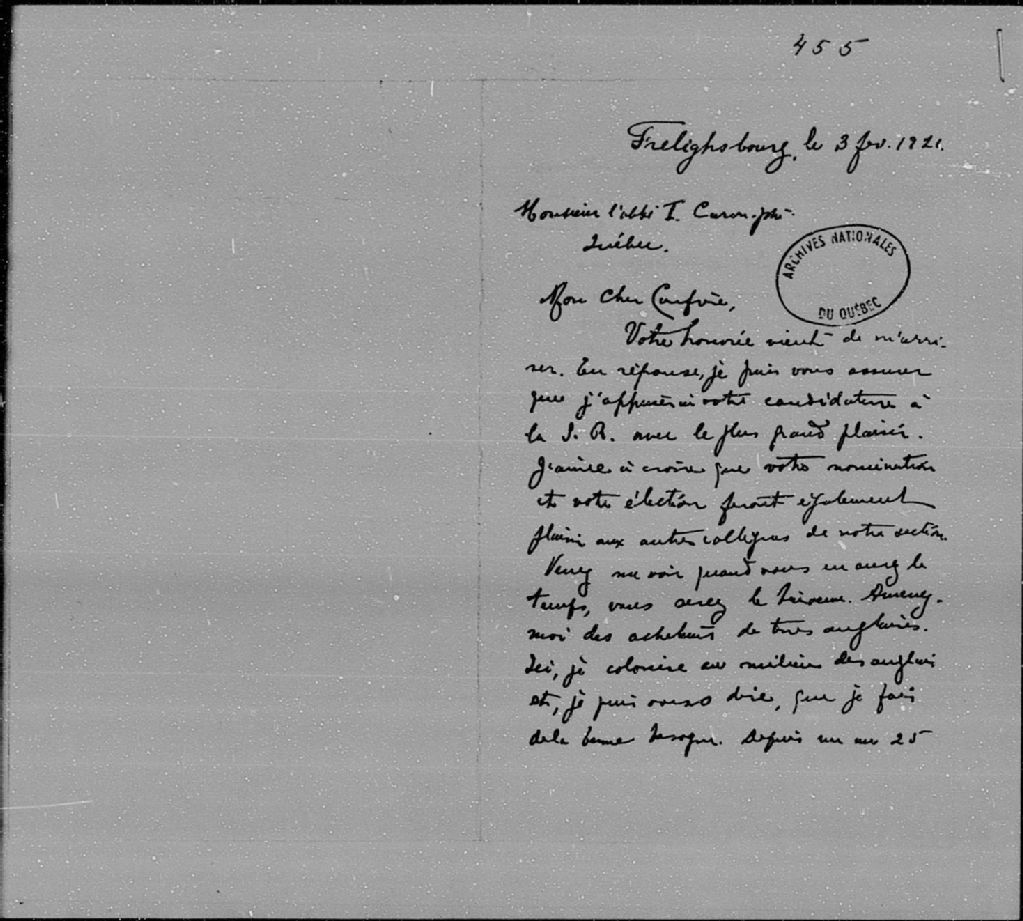 455
Frelighsbourg, le 3 fev. 1921.
Monsieur l'abbé I. Caron, ptre
Québec.
ARCHIVES NATIONALES
DU QUÉBEC
Mon cher Confrère,
Votre honorée vient de m'arri-
ver. En réponse, je puis vous assurer
que j'appuierai votre candidature à
la S. R. avec le plus grand plaisir.
J'aime à croire que votre nomination
et votre élection feront également
plaisir aux autres collègues de notre section.
Venez me voir quand vous en aurez le
temps, vous serez le bienvenu. Amenez-
moi des acheteurs de terres anglaises.
Ici, je colonise au milieu des anglais
et, je puis vous dire, que je fais
de la bonne besogne. Depuis un an 25